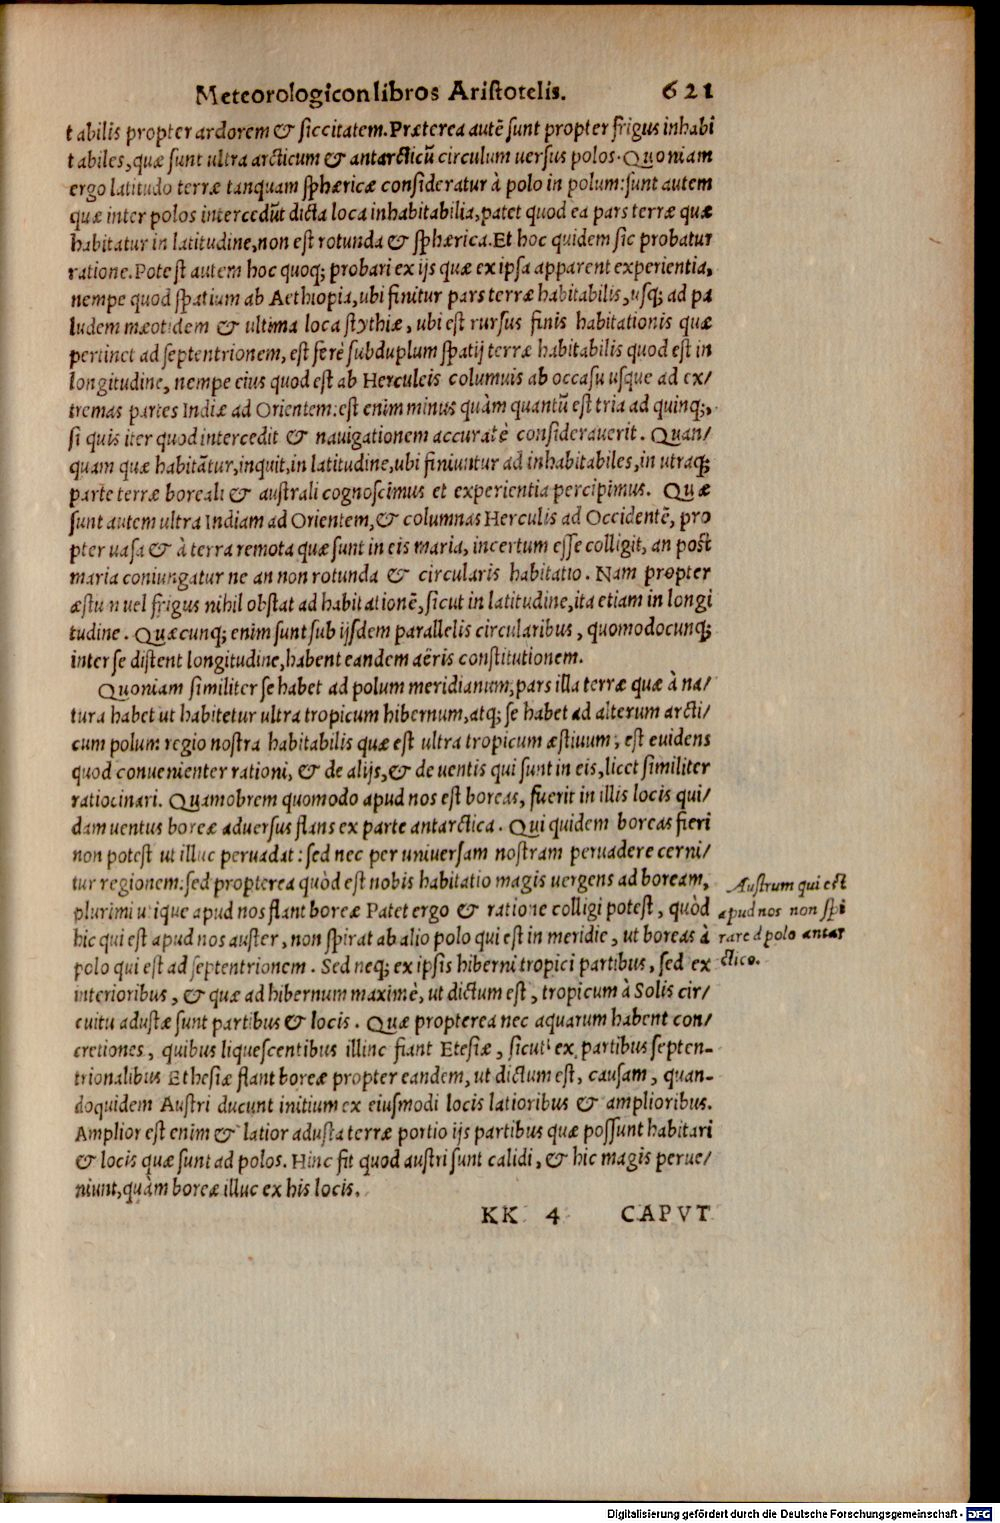 Meteorologicon libros Aristotelis. 621
tabilis propter ardorem & siccitatem. Præterea autē sunt propter frigus inhabi
tabiles, quæ sunt ultra arcticum & antarcticū circulum uersus polos. Quoniam
ergo latitudo terræ tanquam sphæricæ consideratur à polo in polum: sunt autem
quæ inter polos intercedūt dicta loca inhabitabilia, patet quod ea pars terræ quæ
habitatur in latitudine, non est rotunda & sphærica. Et hoc quidem sic probatur
ratione. Potest autem hoc quoq; probari ex ijs quæ ex ipsa apparent experientia,
nempe quod spatium ab Aethiopia, ubi finitur pars terræ habitabilis, usq; ad pa
ludem mæotidem & ultima loca stythiæ, ubi est rursus finis habitationis quæ
pertinet ad septentrionem, est ferè subduplum spatij terræ habitabilis quod est in
longitudine, nempe eius quod est ab Herculeis columuis ab occasu usque ad ex/
tremas partes Indiæ ad Orientem: est enim minus quàm quantū est tria ad quinq;,
si quis iter quod intercedit & nauigationem accuratè considerauerit. Quan/
quam quæ habitātur, inquit, in latitudine, ubi finiuntur ad inhabitabiles, in utraq;
parte terræ boreali & australi cognoscimus et experientia percipimus. Quæ
sunt autem ultra Indiam ad Orientem, & columnas Herculis ad Occidentē, pro
pter uasa & à terra remota quæ sunt in eis maria, incertum esse colligit, an post
maria coniungatur ne an non rotunda & circularis habitatio. Nam propter
æstum uel frigus nihil obstat ad habitationē, sicut in latitudine, ita etiam in longi
tudine. Quæcunq; enim sunt sub ijsdem parallelis circularibus, quomodocunq;
inter se distent longitudine, habent eandem aëris constitutionem.
Quoniam similiter se habet ad polum meridianum, pars illa terræ quæ à na/
tura habet ut habitetur ultra tropicum hibernum, atq; se habet ad alterum arcti/
cum polum regio nostra habitabilis quæ est ultra tropicum æstiuum, est euidens
quod conuenienter rationi, & de alijs, & de uentis qui sunt in eis, licet similiter
ratiocinari. Quamobrem quomodo apud nos est boreas, fuerit in illis locis qui/
dam uentus boreæ aduersus flans ex parte antarctica. Qui quidem boreas fieri
non potest ut illuc peruadat: sed nec per uniuersam nostram peruadere cerni/
tur regionem: sed propterea quòd est nobis habitatio magis uergens ad boream,
plurimi utique apud nos flant boreæ Patet ergo & ratione colligi potest, quòd
hic qui est apud nos auster, non spirat ab alio polo qui est in meridie, ut boreas à
polo qui est ad septentrionem. Sed neq; ex ipsis hiberni tropici partibus, sed ex
interioribus, & quæ ad hibernum maximè, ut dictum est, tropicum à Solis cir/
cuitu adustæ sunt partibus & locis. Quæ propterea nec aquarum habent con/
cretiones, quibus liquescentibus illinc fiant Etesiæ, sicuti ex partibus septen-
trionalibus Ethesiæ flant boreæ propter eandem, ut dictum est, causam, quan-
doquidem Austri ducunt initium ex eiusmodi locis latioribus & amplioribus.
Amplior est enim & latior adusta terræ portio ijs partibus quæ possunt habitari
& locis quæ sunt ad polos. Hinc fit quod austri sunt calidi, & hic magis perue/
niunt, quàm boreæ illuc ex his locis.
KK 4 CAPVT
Austrum qui est
apud nos non spi
rare à polo antar
ctico.
Digitalisierung gefördert durch die Deutsche Forschungsgemeinschaft - DFG